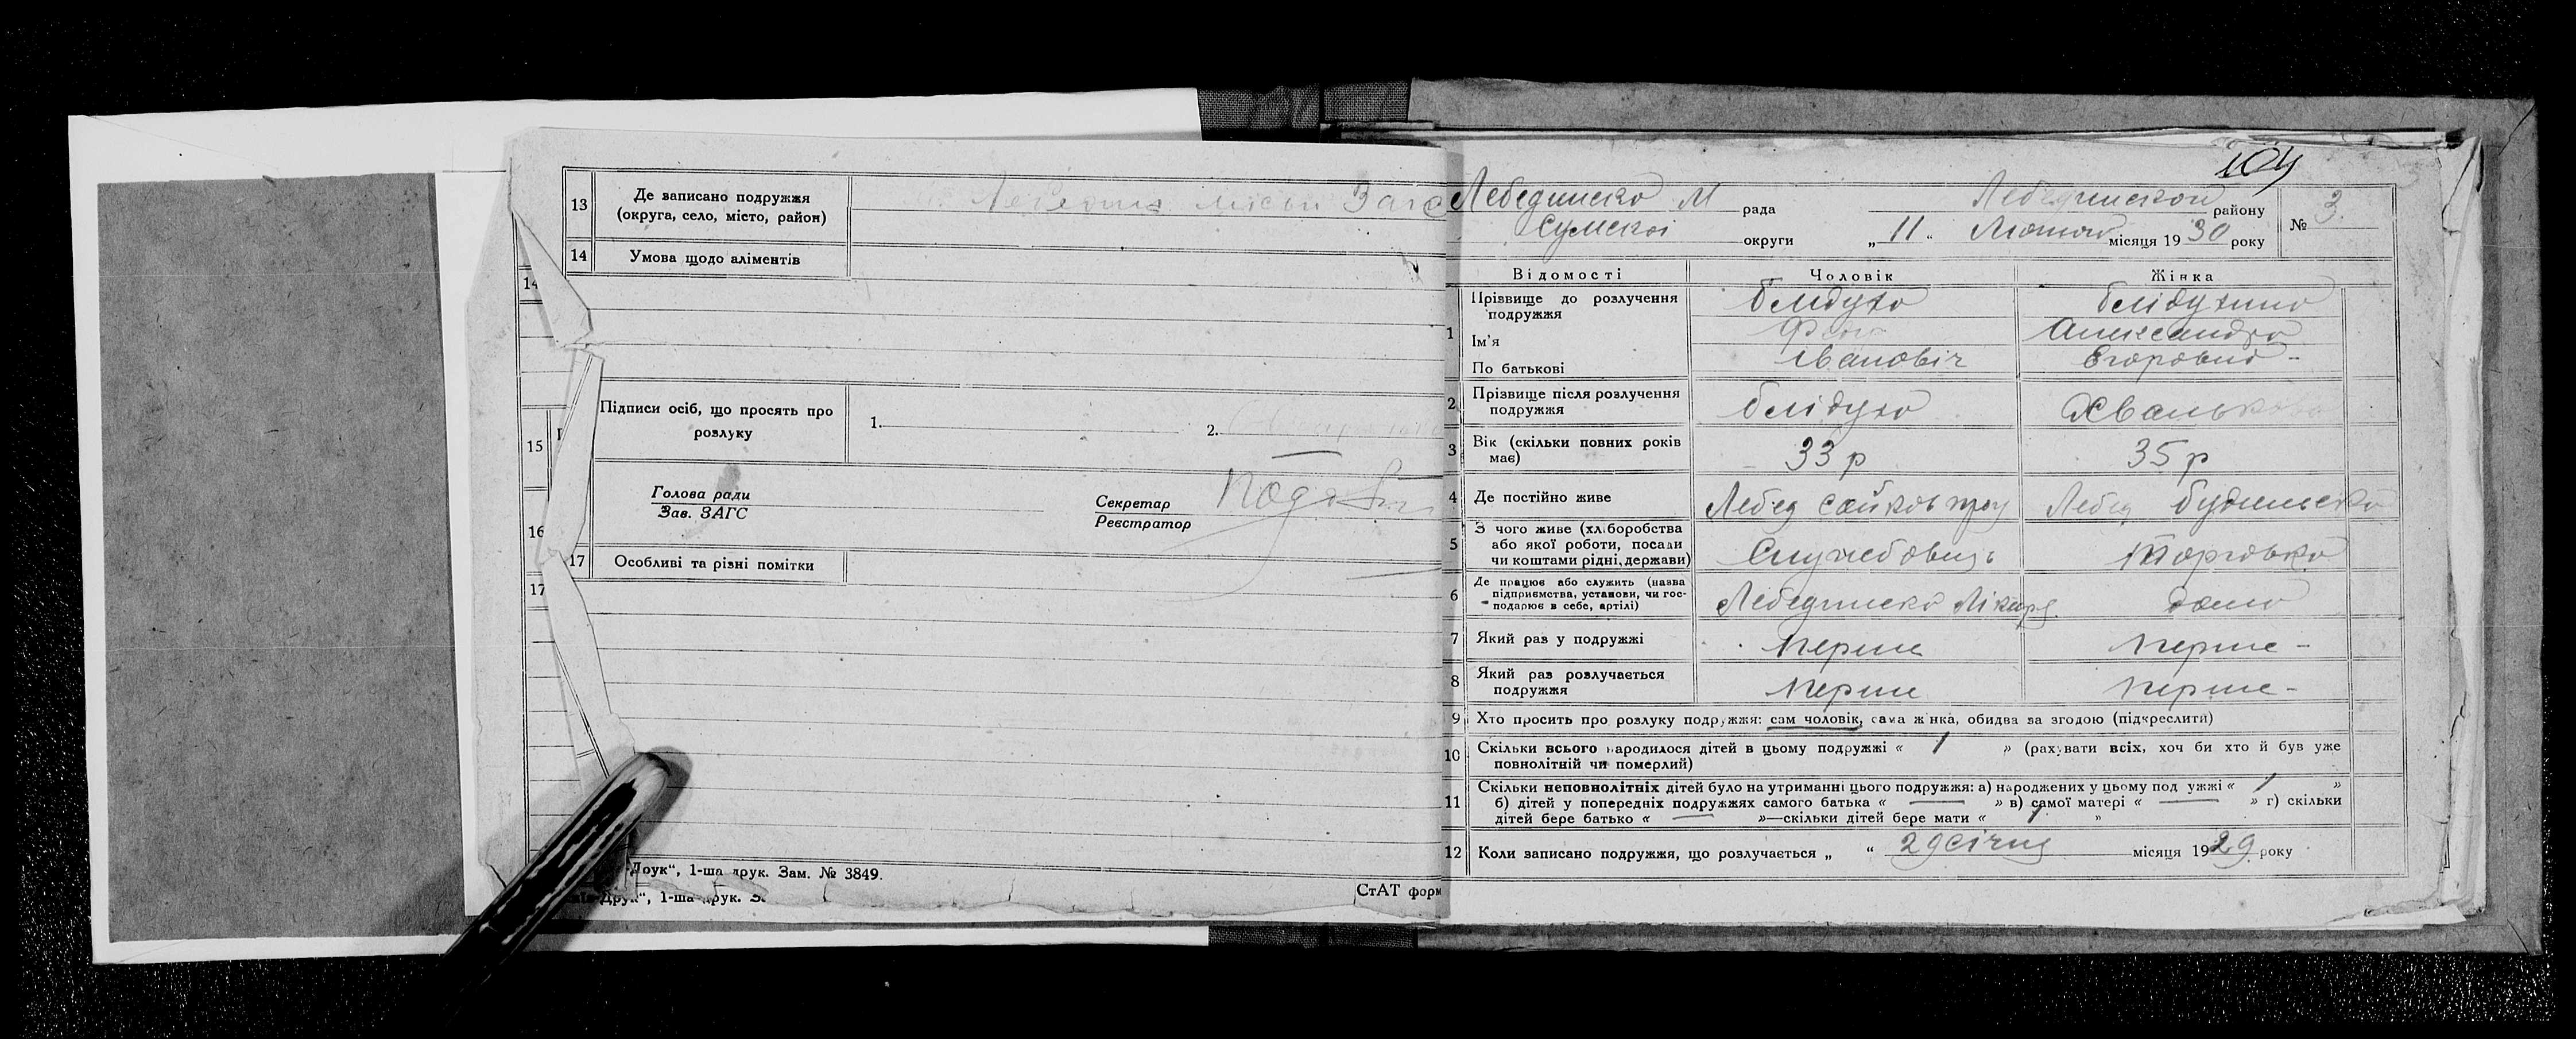 13 Де записано подружжя
(округа, село, місто, район)
14 Умова щодо аліментів
14
15
Підписи осіб, що просять про
розлуку
1.
2.
16
Голова ради
Зав. ЗАГС
Секретар
Реєстратор
17 Особливі та різні помітки
17
Друк", 1-ша друк. Зам. № 3849.
Друк", 1-ша друк.
СтАТ форм
104
Лебединсько М рада Лебединской району № 3
Сумскої округи „11" Лютого місяця 1930 року
Відомості Чоловік Жінка
1 Прізвище до розлучення
подружжя
Ім'я Александра
По батькові Івановіч Егоровна
2 Прізвище після розлучення
подружжя
3 Вік (скільки повних років
має) 33 р 35 р
4 Де постійно живе Лебед Лебед
5 З чого живе (хліборобства
або якої роботи, посади
чи коштами рідні, держави) Службовець Торговка
6 Де працює або служить (назва
підприємства, установи, чи гос-
подарює в себе, артілі) Лебединско дома
7 Який раз у подружжі перше перше
8 Який раз розлучається
подружжя перше перше
9 Хто просить про розлуку подружжя: сам чоловік, сама жінка, обидва за згодою (підкреслити)
10 Скільки всього народилося дітей в цьому подружжі « 1 » (рахувати всіх, хоч би хто й був уже
повнолітній чи померлий)
11 Скільки неповнолітніх дітей було на утриманні цього подружжя: а) народжених у цьому подружжі « 1 »
б) дітей у попередніх подружжях самого батька « — » в) самої матері « — » г) скільки
дітей бере батько « — »—скільки дітей бере мати « 1 »
12 Коли записано подружжя, що розлучається „ " 29 січня місяця 1929 року